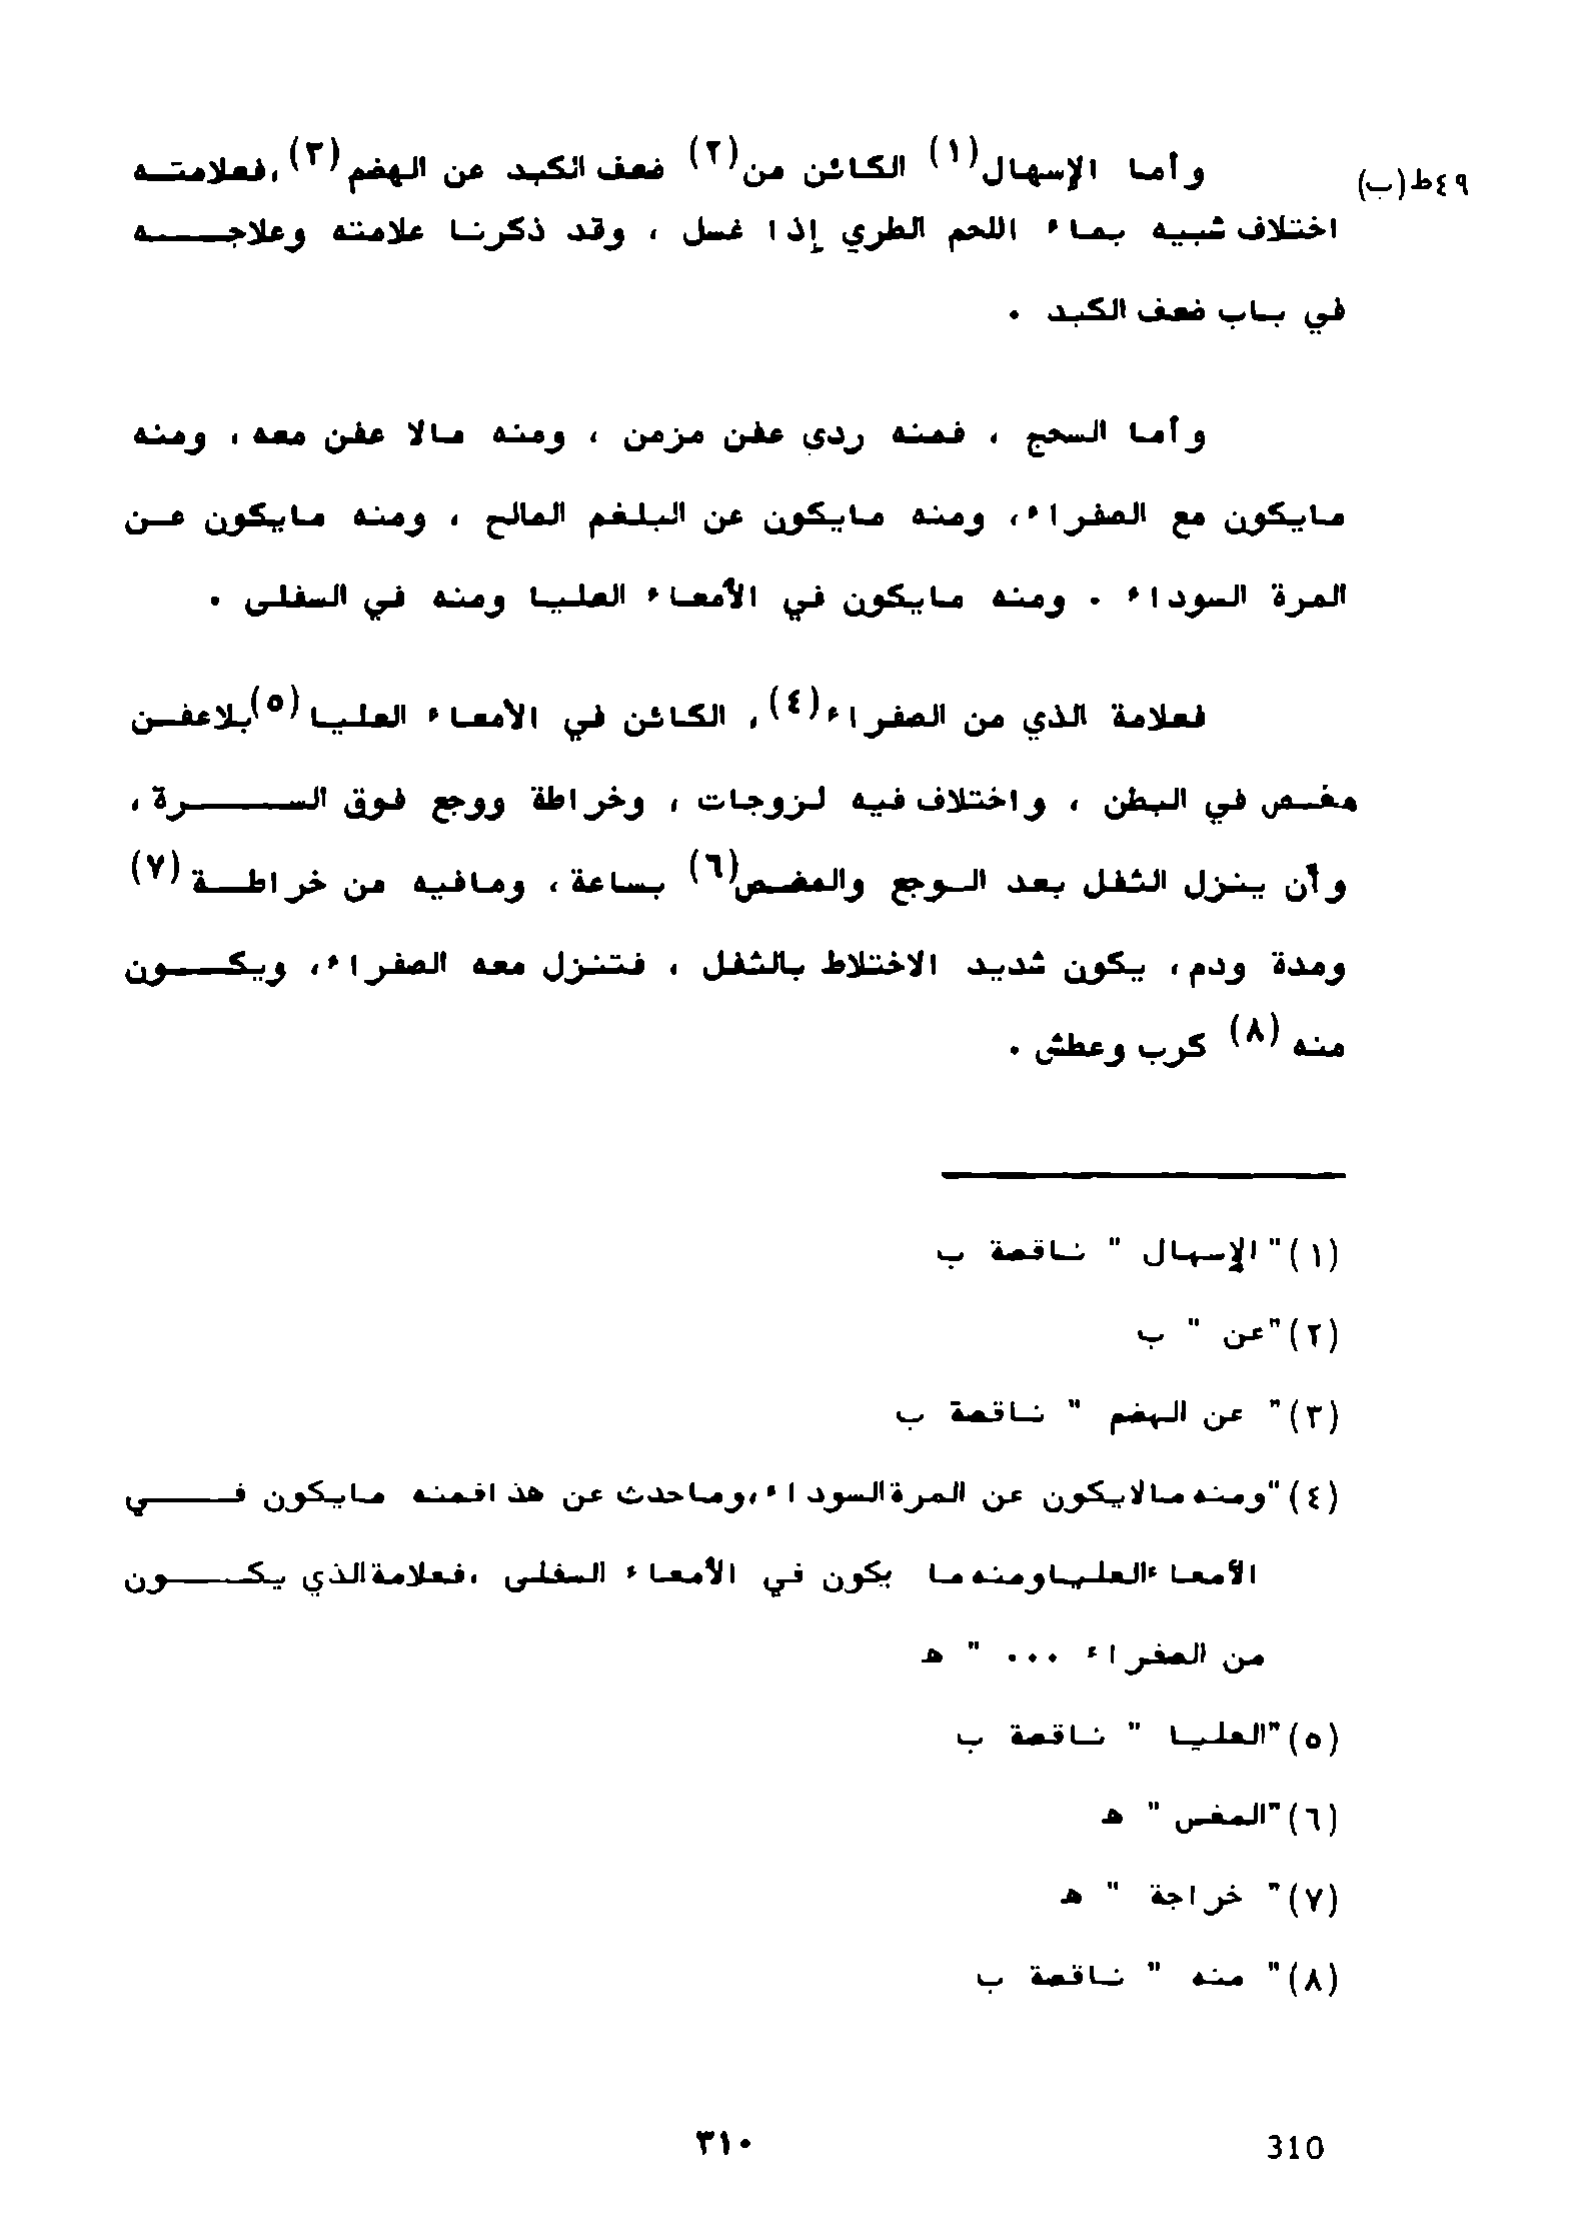 ٤٩ط(ب)
وأما الإسهال(١) الكائن من(٢) ضعف الكبد عن الهضم(٣)، فعلامته
اختلاف شبيه بماء اللحم الطري إذا غسل ، وقد ذكرنا علامته وعلاجه
في باب ضعف الكبد .
وأما السحج ، فمنه ردي عفن مزمن ، ومنه مالا عفن معه، ومنه
مايكون مع الصفراء، ومنه مايكون عن البلغم المالح ، ومنه مايكون عن
المرة السوداء . ومنه مايكون في الأمعاء العليا ومنه في السفلى .
فعلامة الذي من الصفراء(٤)، الكائن في الأمعاء العليا(٥)بلاعفن
مغص في البطن ، واختلاف فيه لزوجات ، وخراطة ووجع فوق السرة ،
وأن ينزل الثفل بعد الوجع والمغص(٦) بساعة، ومافيه من خراطة(٧)
ومدة ودم، يكون شديد الاختلاط بالثفل ، فتنزل معه الصفراء، ويكون
منه(٨) كرب وعطش .
(١)"الإسهال " ناقصة ب
(٢)"عن " ب
(٣)" عن الهضم " ناقصة ب
(٤)"ومنه مالايكون عن المرةالسوداء،وماحدث عن هذافمنه مايكون في
الأمعاءالعلياومنه ما يكون في الأمعاء السفلى ،فعلامةالذي يكون
من الصفراء ... " هـ
(٥)"العليا " ناقصة ب
(٦)"المغس " هـ
(٧)" خراجة " هـ
(٨)" منه " ناقصة ب
٣١٠
310